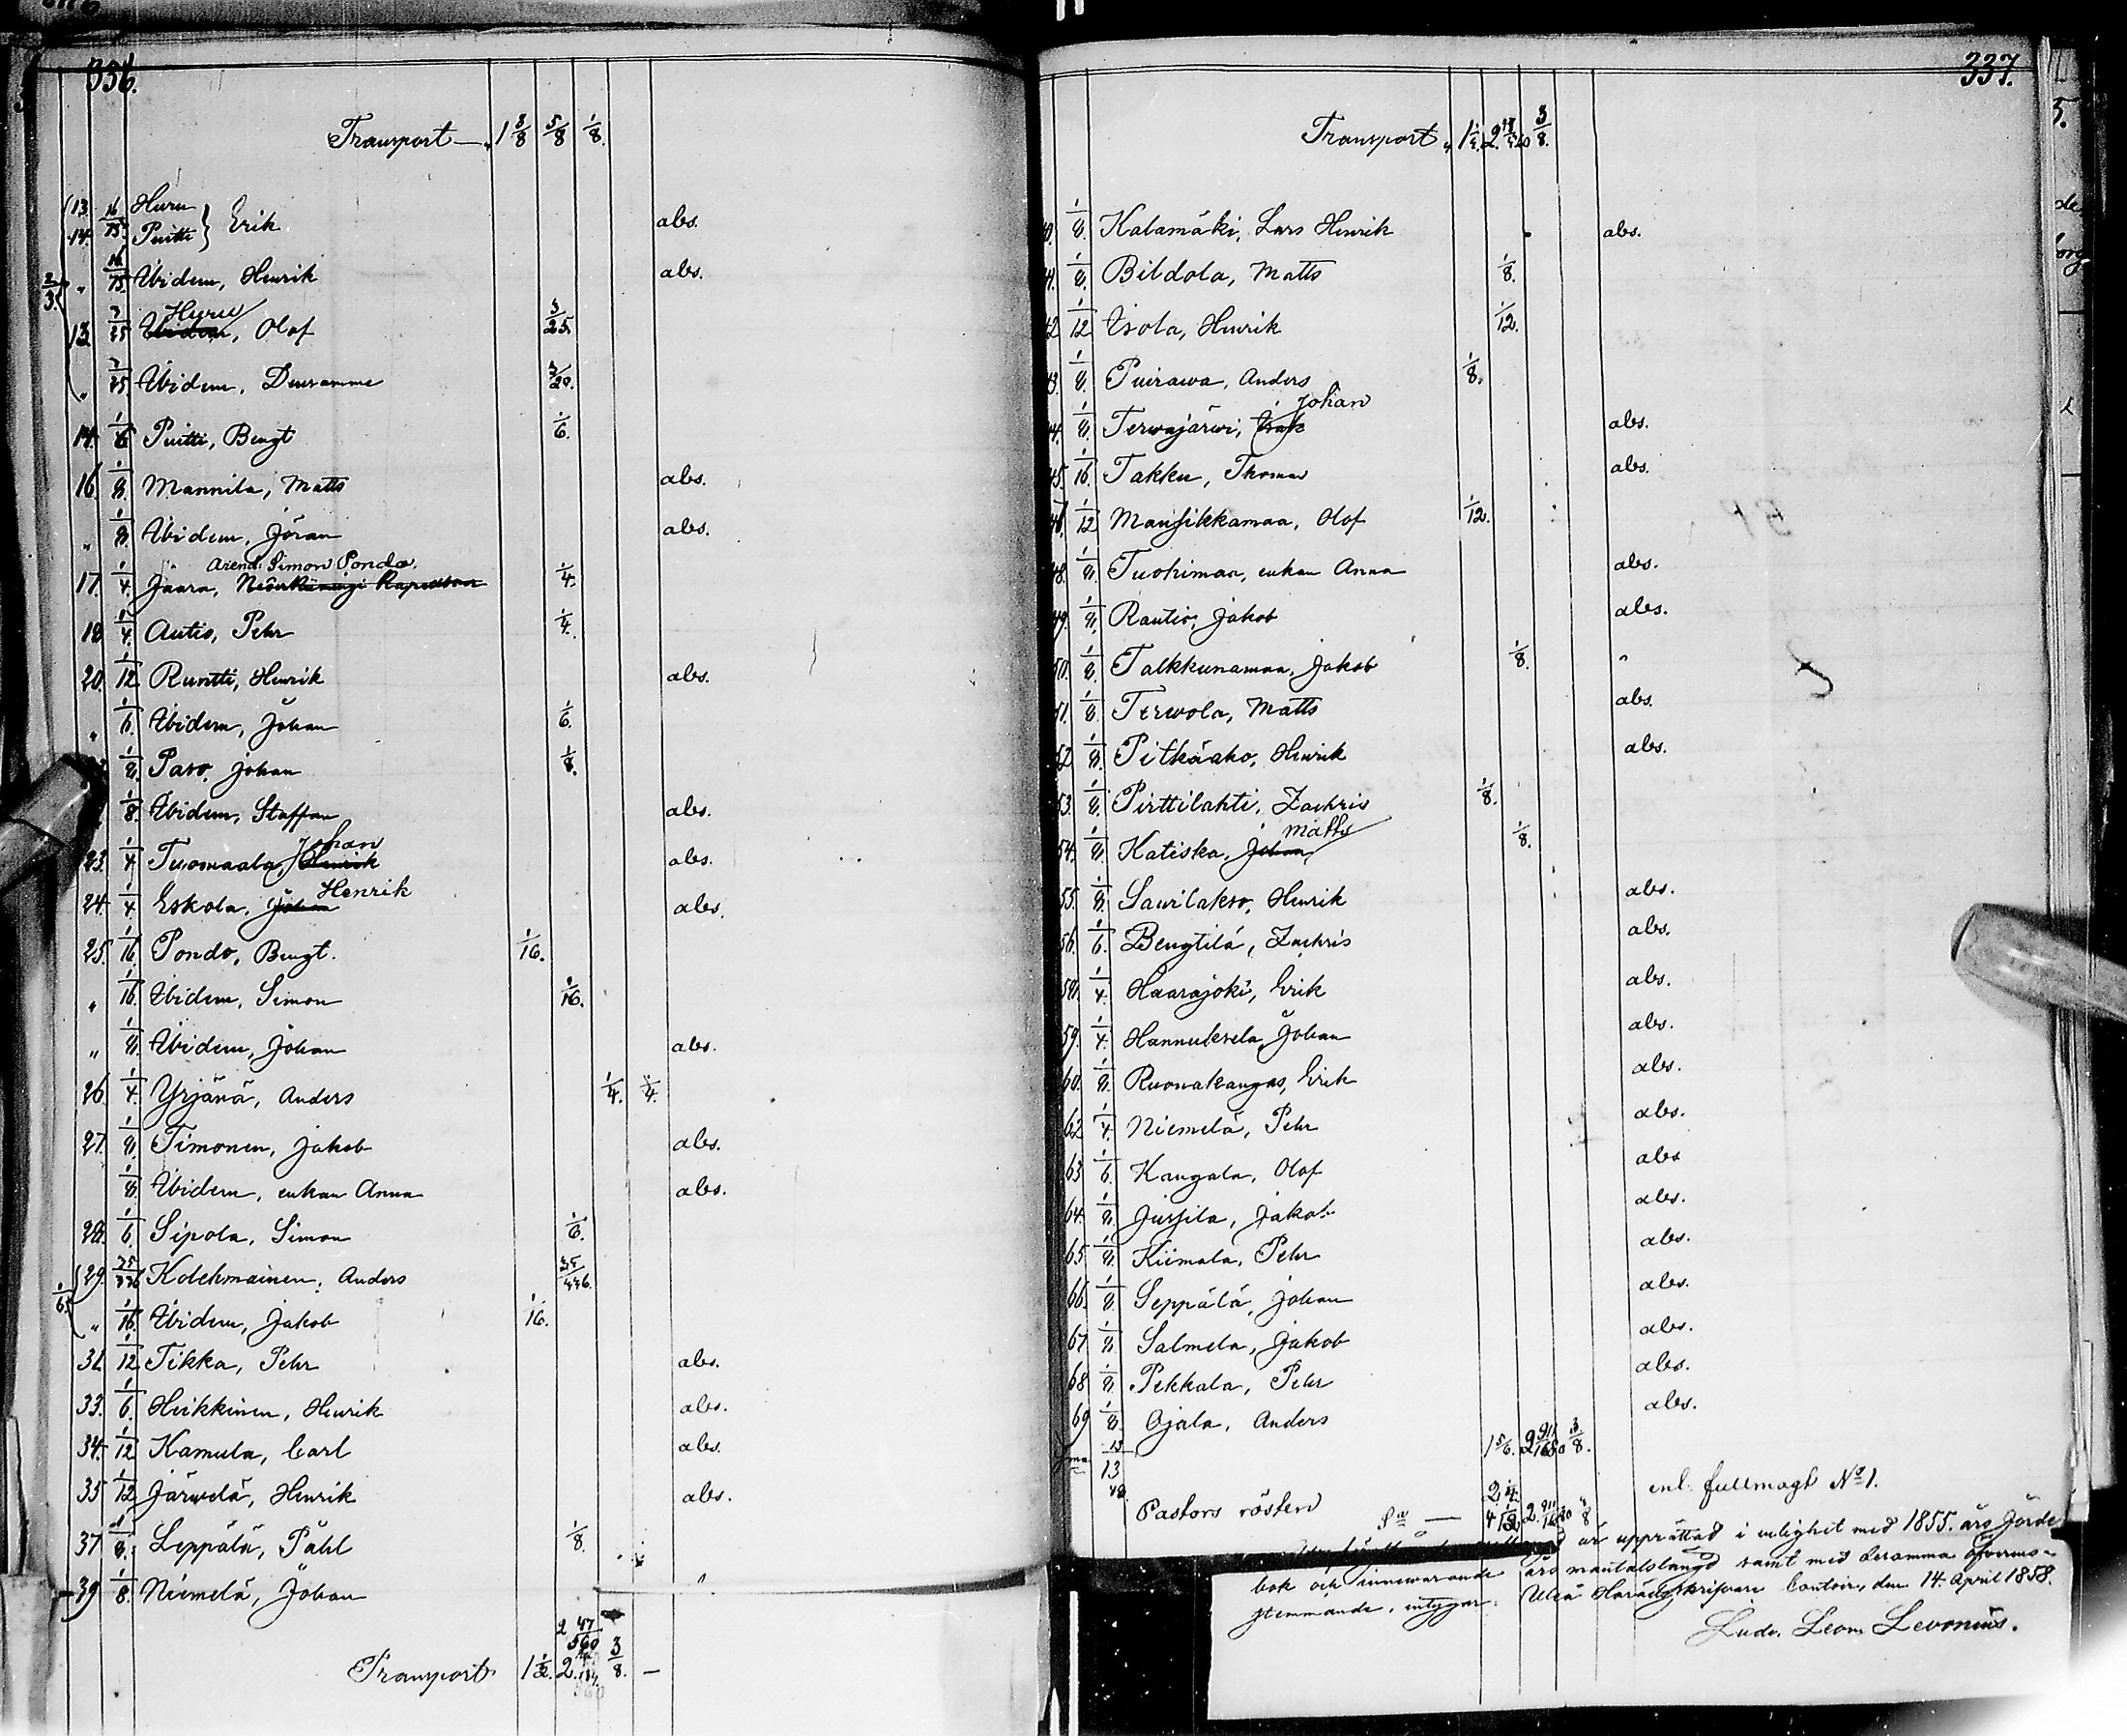 336.
Transport 1 3/8 5/8 1/8.
13 14. 16/75 Huru Puitti } Erik abs.
2/3 " 16/75 Ibidem, Henrik abs.
13 3/25 Huru, Olof 3/25.
" Ibidem, Densamme
14. 1/6 Puitti, Bengt 1/6.
16. 1/8. Mannila, Matts abs.
" 1/8. Ibidem, Jöran abs.
Arend: Simon Pondo
17. 1/4. Jaara, 1/4.
18. 1/4. Autio, Pehr 1/4.
20. 1/12 Runtti, Henrik abs.
" 1/6. Ibidem, Johan 1/6.
1/8. Paso, Johan 1/8.
1/8. Ibidem, Staffan abs.
Johan
23. 1/4 Tuomaala, Henrik abs.
24. 1/4 Eskola, Johan Henrik abs.
25. 1/16. Pondo, Bengt. 1/16.
" 1/16. Ibidem, Simon 1/16.
" 1/8. Ibidem, Johan abs.
26. 1/4. Yrjänä, Anders 1/4. 1/4.
27. 1/8. Timonen, Jakob abs.
1/8. Ibidem, enkan Anna abs.
28. 1/6. Sipola, Simon 1/6.
29. Kolehmainen, Anders
" 1/16. Ibidem, Jakob 1/16.
31. 1/12 Tikka, Pehr abs.
33. 1/6. Heikkinen, Henrik abs.
34. 1/12 Kamula, Carl abs.
35 1/12 Järwelä, Henrik abs.
37 1/8. Leppälä, Påhl 1/8.
39 1/8. Niemelä, Johan "
Transport 1 1/2. 2. 3/8. —
337.
Transport 3/8.
1/8. Kalamäki, Lars Henrik abs.
41. 1/8. Bildola, Matts 1/8.
42 1/12 Isola, Henrik 1/12.
43. 1/8. Puirawa, Anders 1/8.
Johan
44. 1/8. Terwajärwi, abs.
45. 1/16. Takku, Thomas abs.
46. 1/12 Mansikkamaa, Olof 1/12.
48. 1/8. Tuohimaa, enkan Anna abs.
49. 1/8. Rautio, Jakob abs.
50. 1/8. Talkkunamaa, Jakob 1/8. "
51. 1/8. Terwola, Matts abs.
52 1/8. Pitkäaho, Henrik abs.
53. 1/8. Pirttilahti, Zachris 1/8.
Matts
54. 1/8. Katiska, Johan 1/8.
55. 1/8. Saurilakso, Henrik abs.
56. 1/6. Bengtilä, Zachris abs.
58. 1/4. Haarajoki, Erik abs.
59. 1/4. Hannuksela, Johan abs.
60. 1/8. Ruonakangas, Erik abs.
62 1/4. Niemelä, Pehr abs.
63 1/6. Kangala, Olof abs
64. 1/8. Jussila, Jakob abs.
65 1/8. Kiimala, Pehr abs.
66. 1/8. Seppälä, Johan abs.
67 1/8 Salmela, Jakob abs.
68 1/8. Pekkala, Pehr abs.
69 1/8 Ojala, Anders abs.
1 5/6. 3/8.
Pastors rösten enl. fullmagt No 1.
Sa —
är upprättad i enlighet med 1855. års Jorde
bok och innewarande års mantalslängd samt med desamma öfverens-
stemmande, intygar. Uleå Häradsskrifvare Contoir, den 14. April 1858.
Ludv. Leon. Levonius.